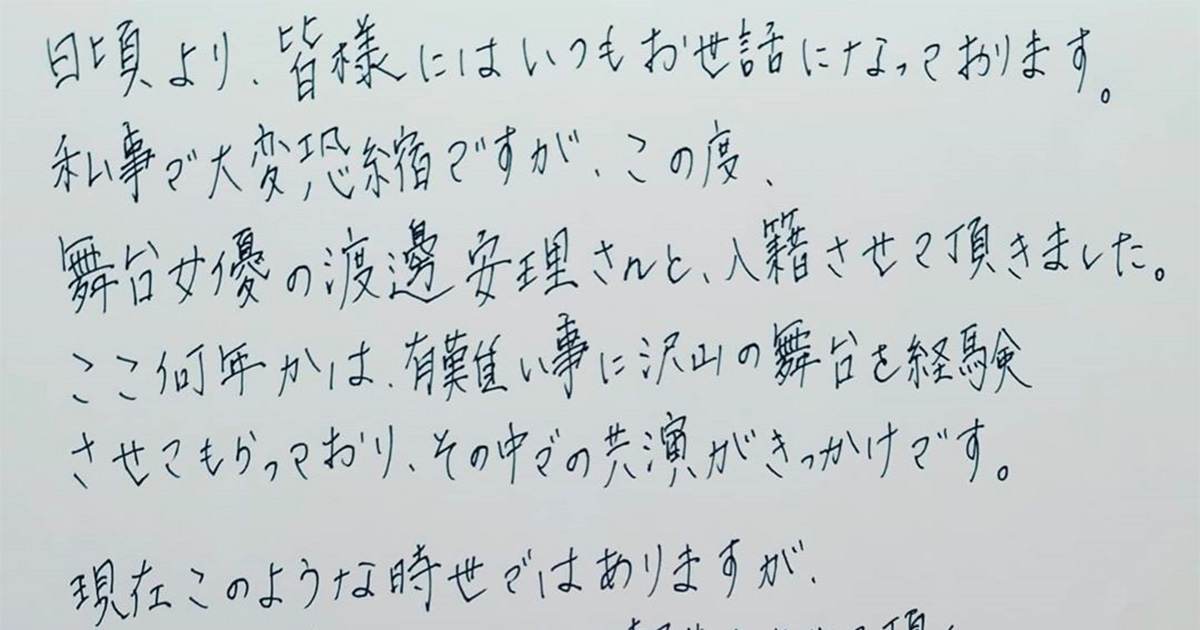 日頃より、皆様にはいつもお世話になっております。
私事で大変恐縮ですが、この度、
舞台女優の渡邊安理さんと、入籍させて頂きました。
ここ何年かは、有難い事に沢山の舞台を経験
させてもらっており、その中での共演がきっかけです。
現在このような時世ではありますが、